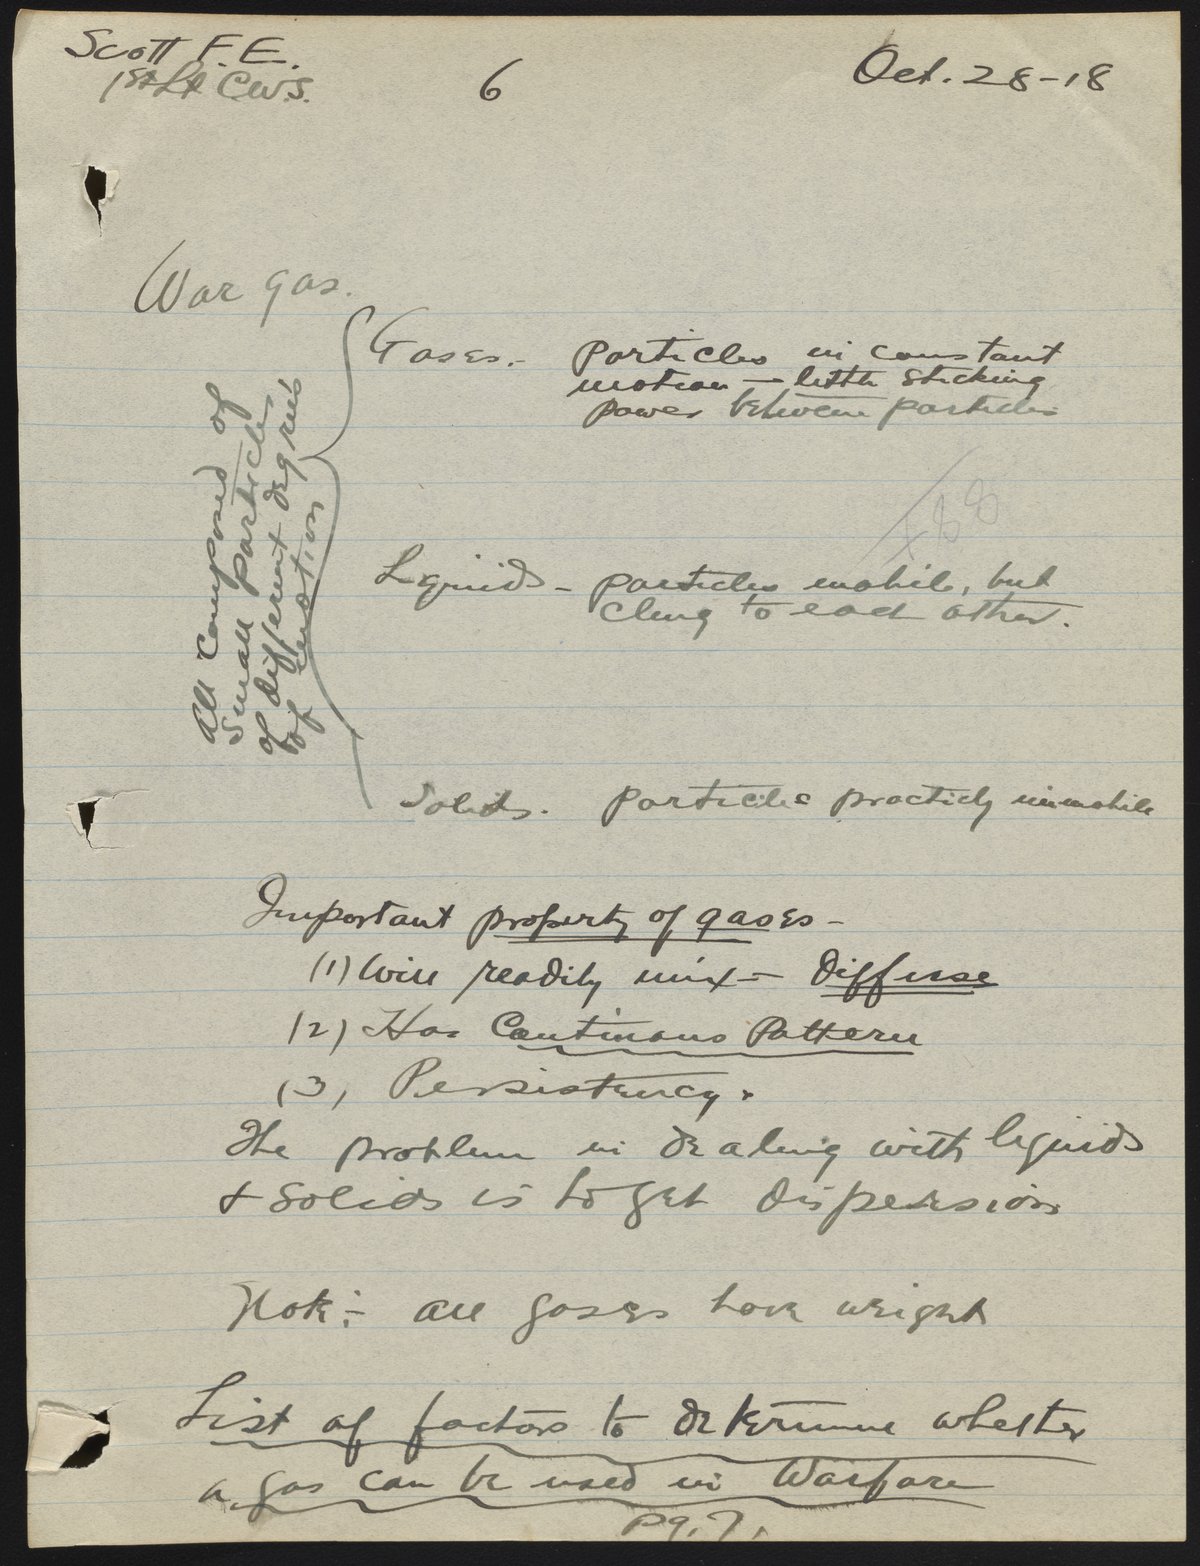 Scott F. E.
1st Lt C.W.S.
6
Oct. 28-18
War gas.
All composed of
small particles
of different degrees
of motion
Gases.- particles in constant
motion - little sticking
power between particles
488
Liquids - particles mobile, but
cling to each other.
Solids. particles practicly immobile
Important property of gases -
(1) Will readily mix - Diffuse
(2) Has Continous Pattern
(3) Persistency.
The problem in dealing with liquids
& solids is to get dispersion
Note:- all gases have weight
List of factors to determine whether
a gas can be used in Warfare
pg. 7.